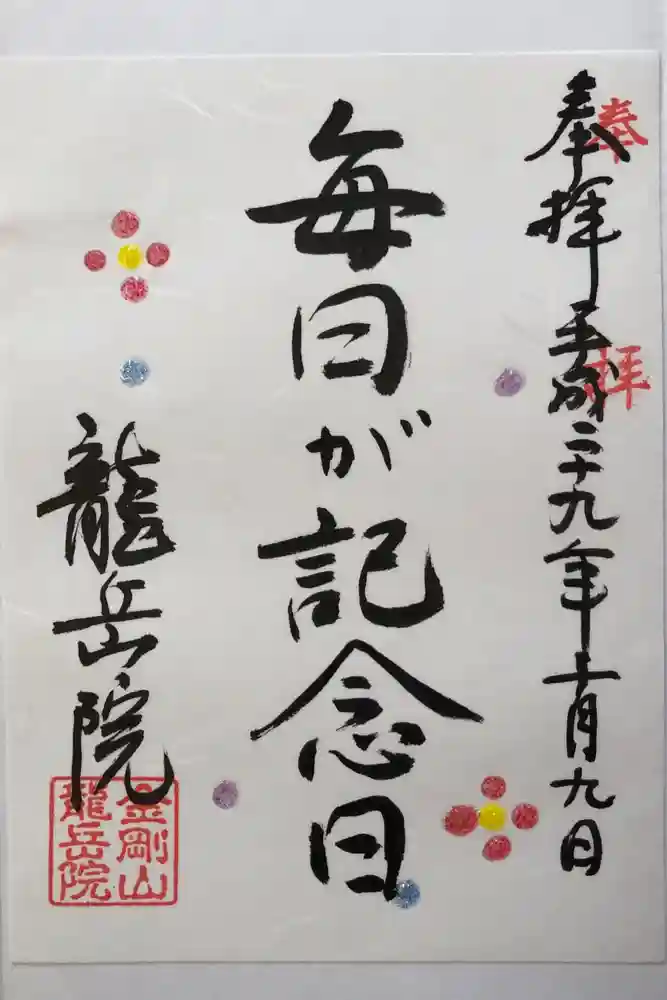 奉拝 平成二十九年十一月九日
奉拝
毎日が記念日
龍岳院
金剛山
龍岳院